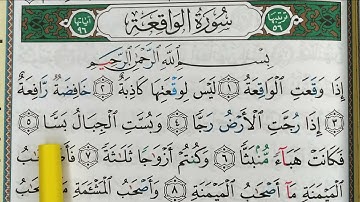 ترتيبها ٥٦ سُورَةُ الوَاقِعَةِ آياتها ٩٦
بِسْمِ اللَّهِ الرَّحْمَٰنِ الرَّحِيمِ
إِذَا وَقَعَتِ ٱلْوَاقِعَةُ ١ لَيْسَ لِوَقْعَتِهَا كَاذِبَةٌ ٢ خَافِضَةٌ رَّافِعَةٌ
٣ إِذَا رُجَّتِ ٱلْأَرْضُ رَجًّا ٤ وَبُسَّتِ ٱلْجِبَالُ بَسًّا ٥
فَكَانَتْ هَبَآءً مُّنۢبَثًّا ٦ وَكُنتُمْ أَزْوَٰجًا ثَلَٰثَةً ٧ فَأَصْحَٰبُ
ٱلْمَيْمَنَةِ مَآ أَصْحَٰبُ ٱلْمَيْمَنَةِ ٨ وَأَصْحَٰبُ ٱلْمَشْـَٔمَةِ مَآ أَصْحَٰبُ